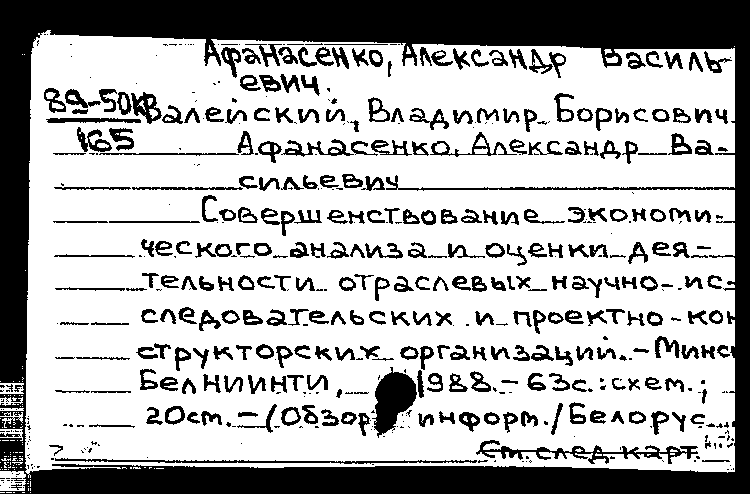 Афанасенко, Александр Василь-
евич.
89-50КВ
165
Валейский, Владимир Борисович
Афанасенко, Александр Ва-
сильевич
Совершенствование экономи-
ческого анализа и оценки дея-
тельности отраслевых научно-ис-
следовательских и проектно-кон
структорских организаций.-Минс
БелНИИНТИ, 1988.-63с.:схем.;
20см.-(Обзор информ./Белорус
См. след. карт.